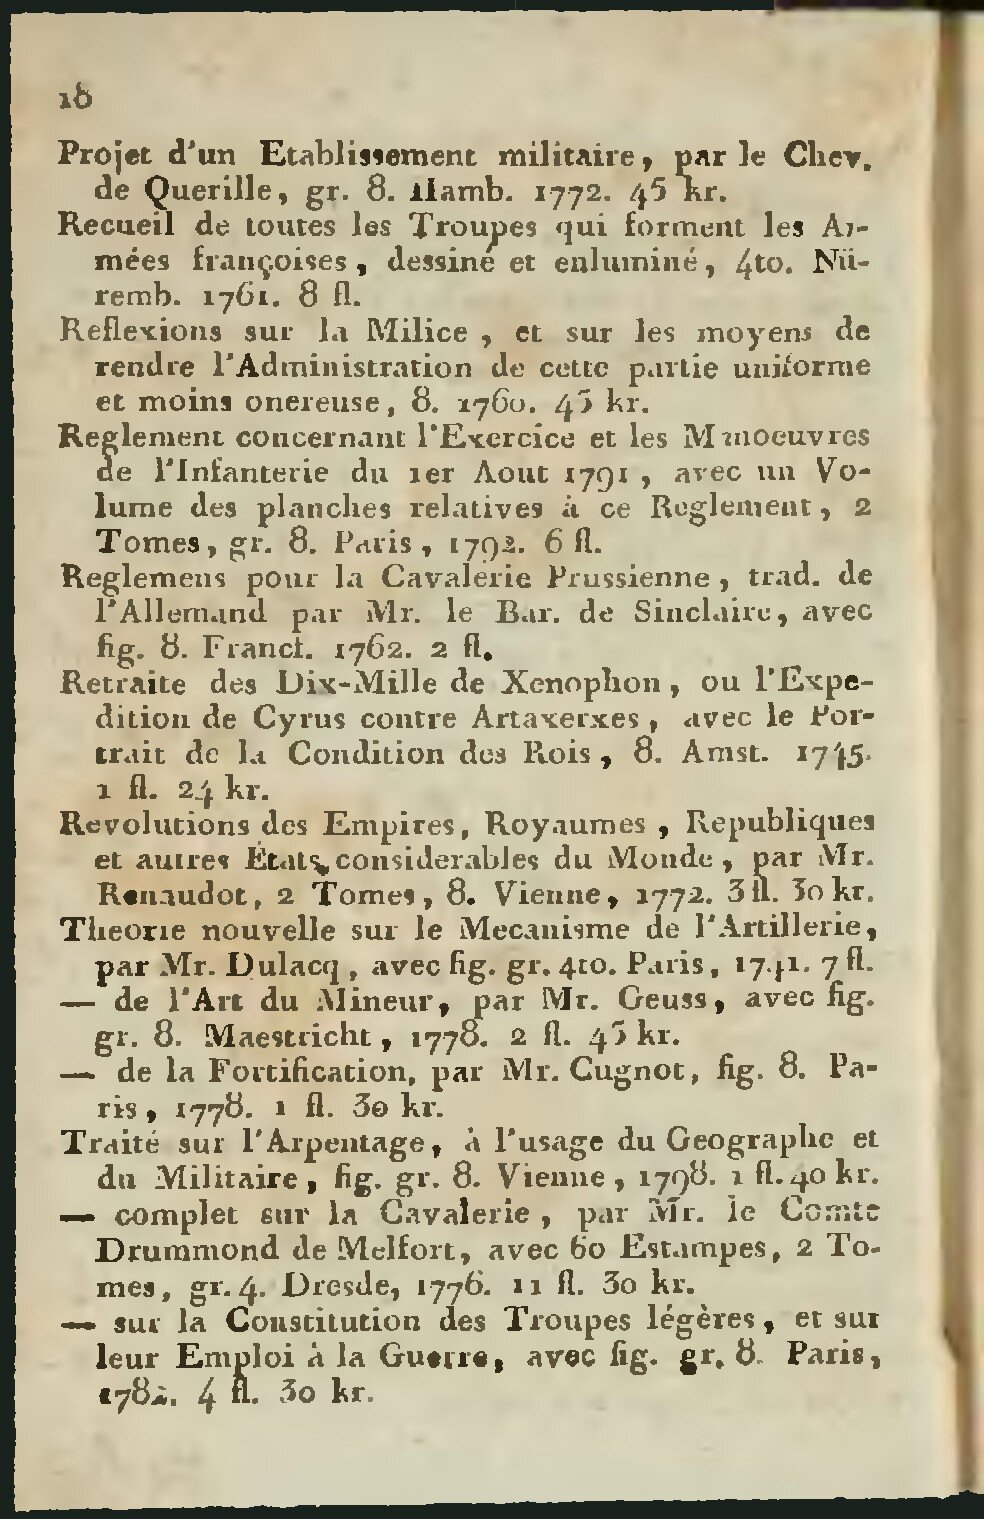 18
Projet d'un Etablissement militaire, par le Chev.
de Querille, gr. 8. Hamb. 1772. 45 kr.
Recueil de toutes les Troupes qui forment les Ar-
mées françoises, dessiné et enluminé, 4to. Nü-
remb. 1761. 8 fl.
Reflexions sur la Milice, et sur les moyens de
rendre l'Administration de cette partie uniforme
et moins onereuse, 8. 1760. 45 kr.
Reglement concernant l'Exercice et les Manoeuvres
de l'Infanterie du 1er Aout 1791, avec un Vo-
lume des planches relatives à ce Reglement, 2
Tomes, gr. 8. Paris, 1792. 6 fl.
Reglemens pour la Cavalerie Prussienne, trad. de
l'Allemand par Mr. le Bar. de Sinclaire, avec
fig. 8. Francf. 1762. 2 fl.
Retraite des Dix-Mille de Xenophon, ou l'Expe-
dition de Cyrus contre Artaxerxes, avec le Por-
trait de la Condition des Rois, 8. Amst. 1745.
1 fl. 24 kr.
Revolutions des Empires, Royaumes, Republiques
et autres États, considerables du Monde, par Mr.
Renaudot, 2 Tomes, 8. Vienne, 1772. 3 fl. 30 kr.
Theorie nouvelle sur le Mecanisme de l'Artillerie,
par Mr. Dulacq, avec fig. gr. 4to. Paris, 1741. 7 fl.
— de l'Art du Mineur, par Mr. Geuss, avec fig.
gr. 8. Maestricht, 1778. 2 fl. 45 kr.
— de la Fortification, par Mr. Cugnot, fig. 8. Pa-
ris, 1778. 1 fl. 30 kr.
Traité sur l'Arpentage, à l'usage du Geographe et
du Militaire, fig. gr. 8. Vienne, 1798. 1 fl. 40 kr.
— complet sur la Cavalerie, par Mr. le Comte
Drummond de Melfort, avec 60 Estampes, 2 To-
mes, gr. 4. Dresde, 1776. 11 fl. 30 kr.
— sur la Constitution des Troupes légères, et sur
leur Emploi à la Guerre, avec fig. gr. 8. Paris,
1782. 4 fl. 30 kr.